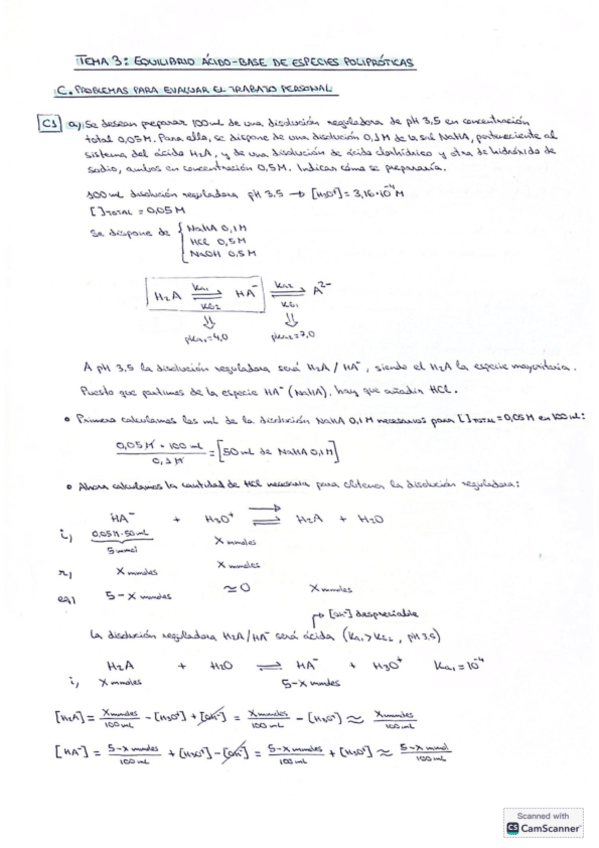 TEMA 3: EQUILIBRIO ÁCIDO-BASE DE ESPECIES POLIPRÓTICAS
C. PROBLEMAS PARA EVALUAR EL TRABAJO PERSONAL
C1 a) Se desean preparar 100 mL de una disolución reguladora de pH 3,5 en concentración
total 0,05 M. Para ello, se dispone de una disolución 0,1 M de la sal NaHA, perteneciente al
sistema del ácido H₂A, y de una disolución de ácido clorhídrico y otra de hidróxido de
sodio, ambos en concentración 0,5 M. Indicar cómo se prepararía.
100 mL disolución reguladora pH 3.5 → [H₃O⁺] = 3,16·10⁻⁴ M
[ ]TOTAL = 0,05 M
Se dispone de { NaHA 0,1 M
HCl 0,5 M
NaOH 0.5 M
H₂A ⇌ HA⁻ ⇌ A²⁻
Ka₁ Ka₂
Kb₂ Kb₁
pKa₁=4,0 pKa₂=7,0
A pH 3.5 la disolución reguladora será H₂A / HA⁻, siendo el H₂A la especie mayoritaria.
Puesto que partimos de la especie HA⁻ (NaHA), hay que añadir HCl.
• Primero calculamos los mL de la disolución NaHA 0,1 M necesarios para [ ]TOTAL = 0,05 M en 100 mL:
0,05 M · 100 mL / 0,1 M = [50 mL de NaHA 0,1 M]
• Ahora calculamos la cantidad de HCl necesaria para obtener la disolución reguladora:
HA⁻ + H₃O⁺ ⇌ H₂A + H₂O
i) 0,05 M · 50 mL X mmoles
5 mmol
r) X mmoles X mmoles
eq) 5-X mmoles ≃0 X mmoles
→ [OH⁻] despreciable
La disolución reguladora H₂A/HA⁻ será ácida (Ka₁ > Kb₂, pH 3.5)
H₂A + H₂O ⇌ HA⁻ + H₃O⁺ Ka₁ = 10⁻⁴
i) X mmoles 5-X mmoles
[H₂A] = X mmoles / 100 mL - [H₃O⁺] + [OH⁻] = X mmoles / 100 mL - [H₃O⁺] ≈ X mmoles / 100 mL
[HA⁻] = 5-X mmoles / 100 mL + [H₃O⁺] - [OH⁻] = 5-X mmoles / 100 mL + [H₃O⁺] ≈ 5-X mmol / 100 mL
Scanned with
CS CamScanner